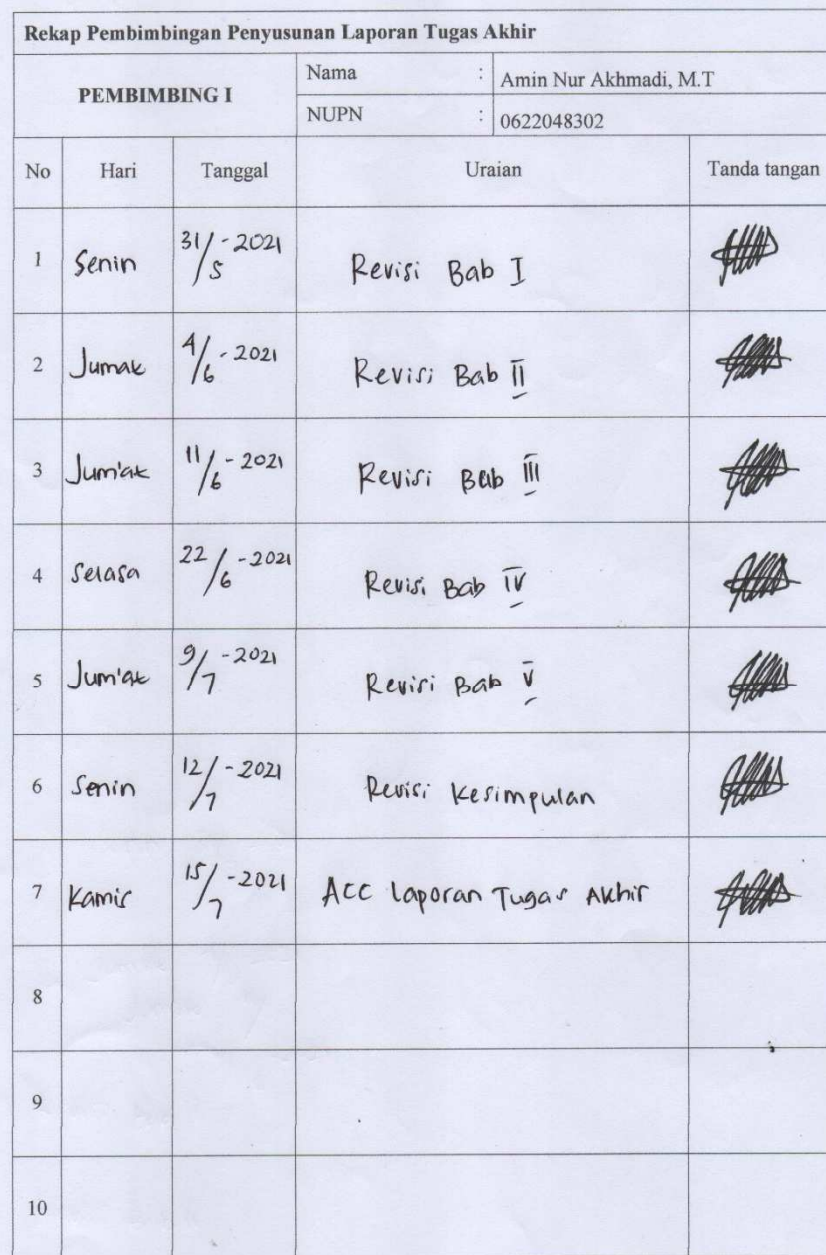 Rekap Pembimbingan Penyusunan Laporan Tugas Akhir
PEMBIMBING I
Nama : Amin Nur Akhmadi, M.T
NUPN : 0622048302
No Hari Tanggal Uraian Tanda tangan
1 Senin 31/5-2021 Revisi Bab I
2 Jumat 4/6-2021 Revisi Bab II
3 Jum'at 11/6-2021 Revisi Bab III
4 Selasa 22/6-2021 Revisi Bab IV
5 Jum'at 9/7-2021 Revisi Bab V
6 Senin 12/7-2021 Revisi Kesimpulan
7 Kamis 15/7-2021 ACC Laporan Tugas Akhir
8
9
10